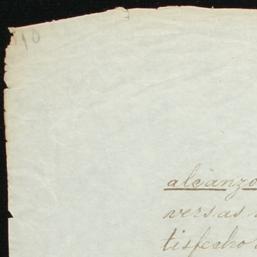 10
alcanzo
versas
tisfecho